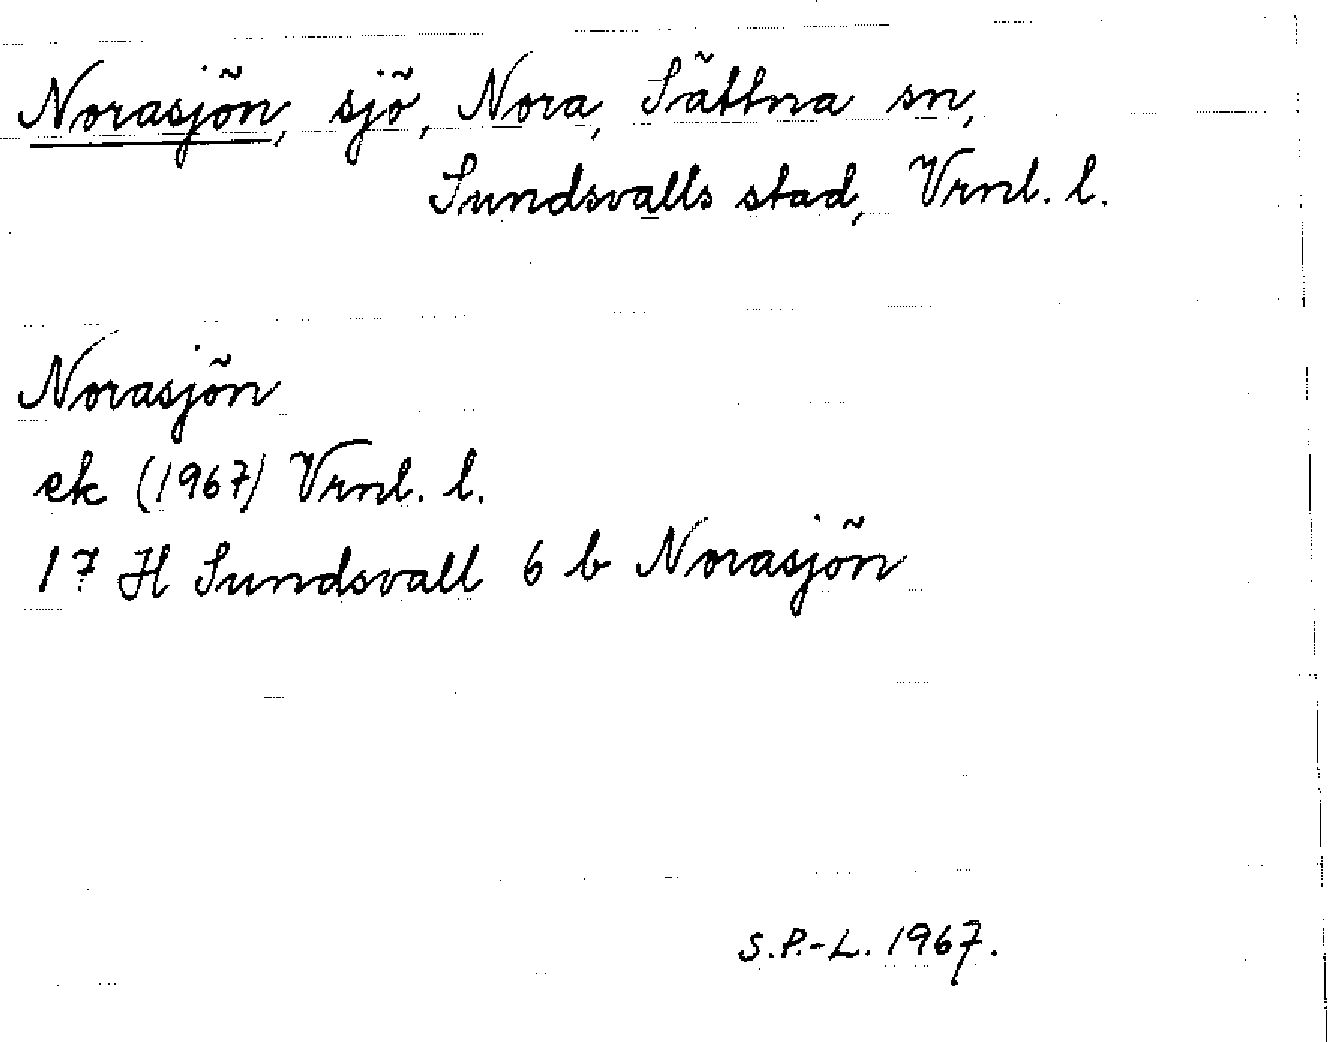 Norasjön, sjö, Nora, Sättna sn,
Sundsvalls stad, Vrnl. l.
Norasjön
ek (1967) Vrnl. l.
17 H Sundsvall 6 b Norasjön
S.P.-L. 1967.